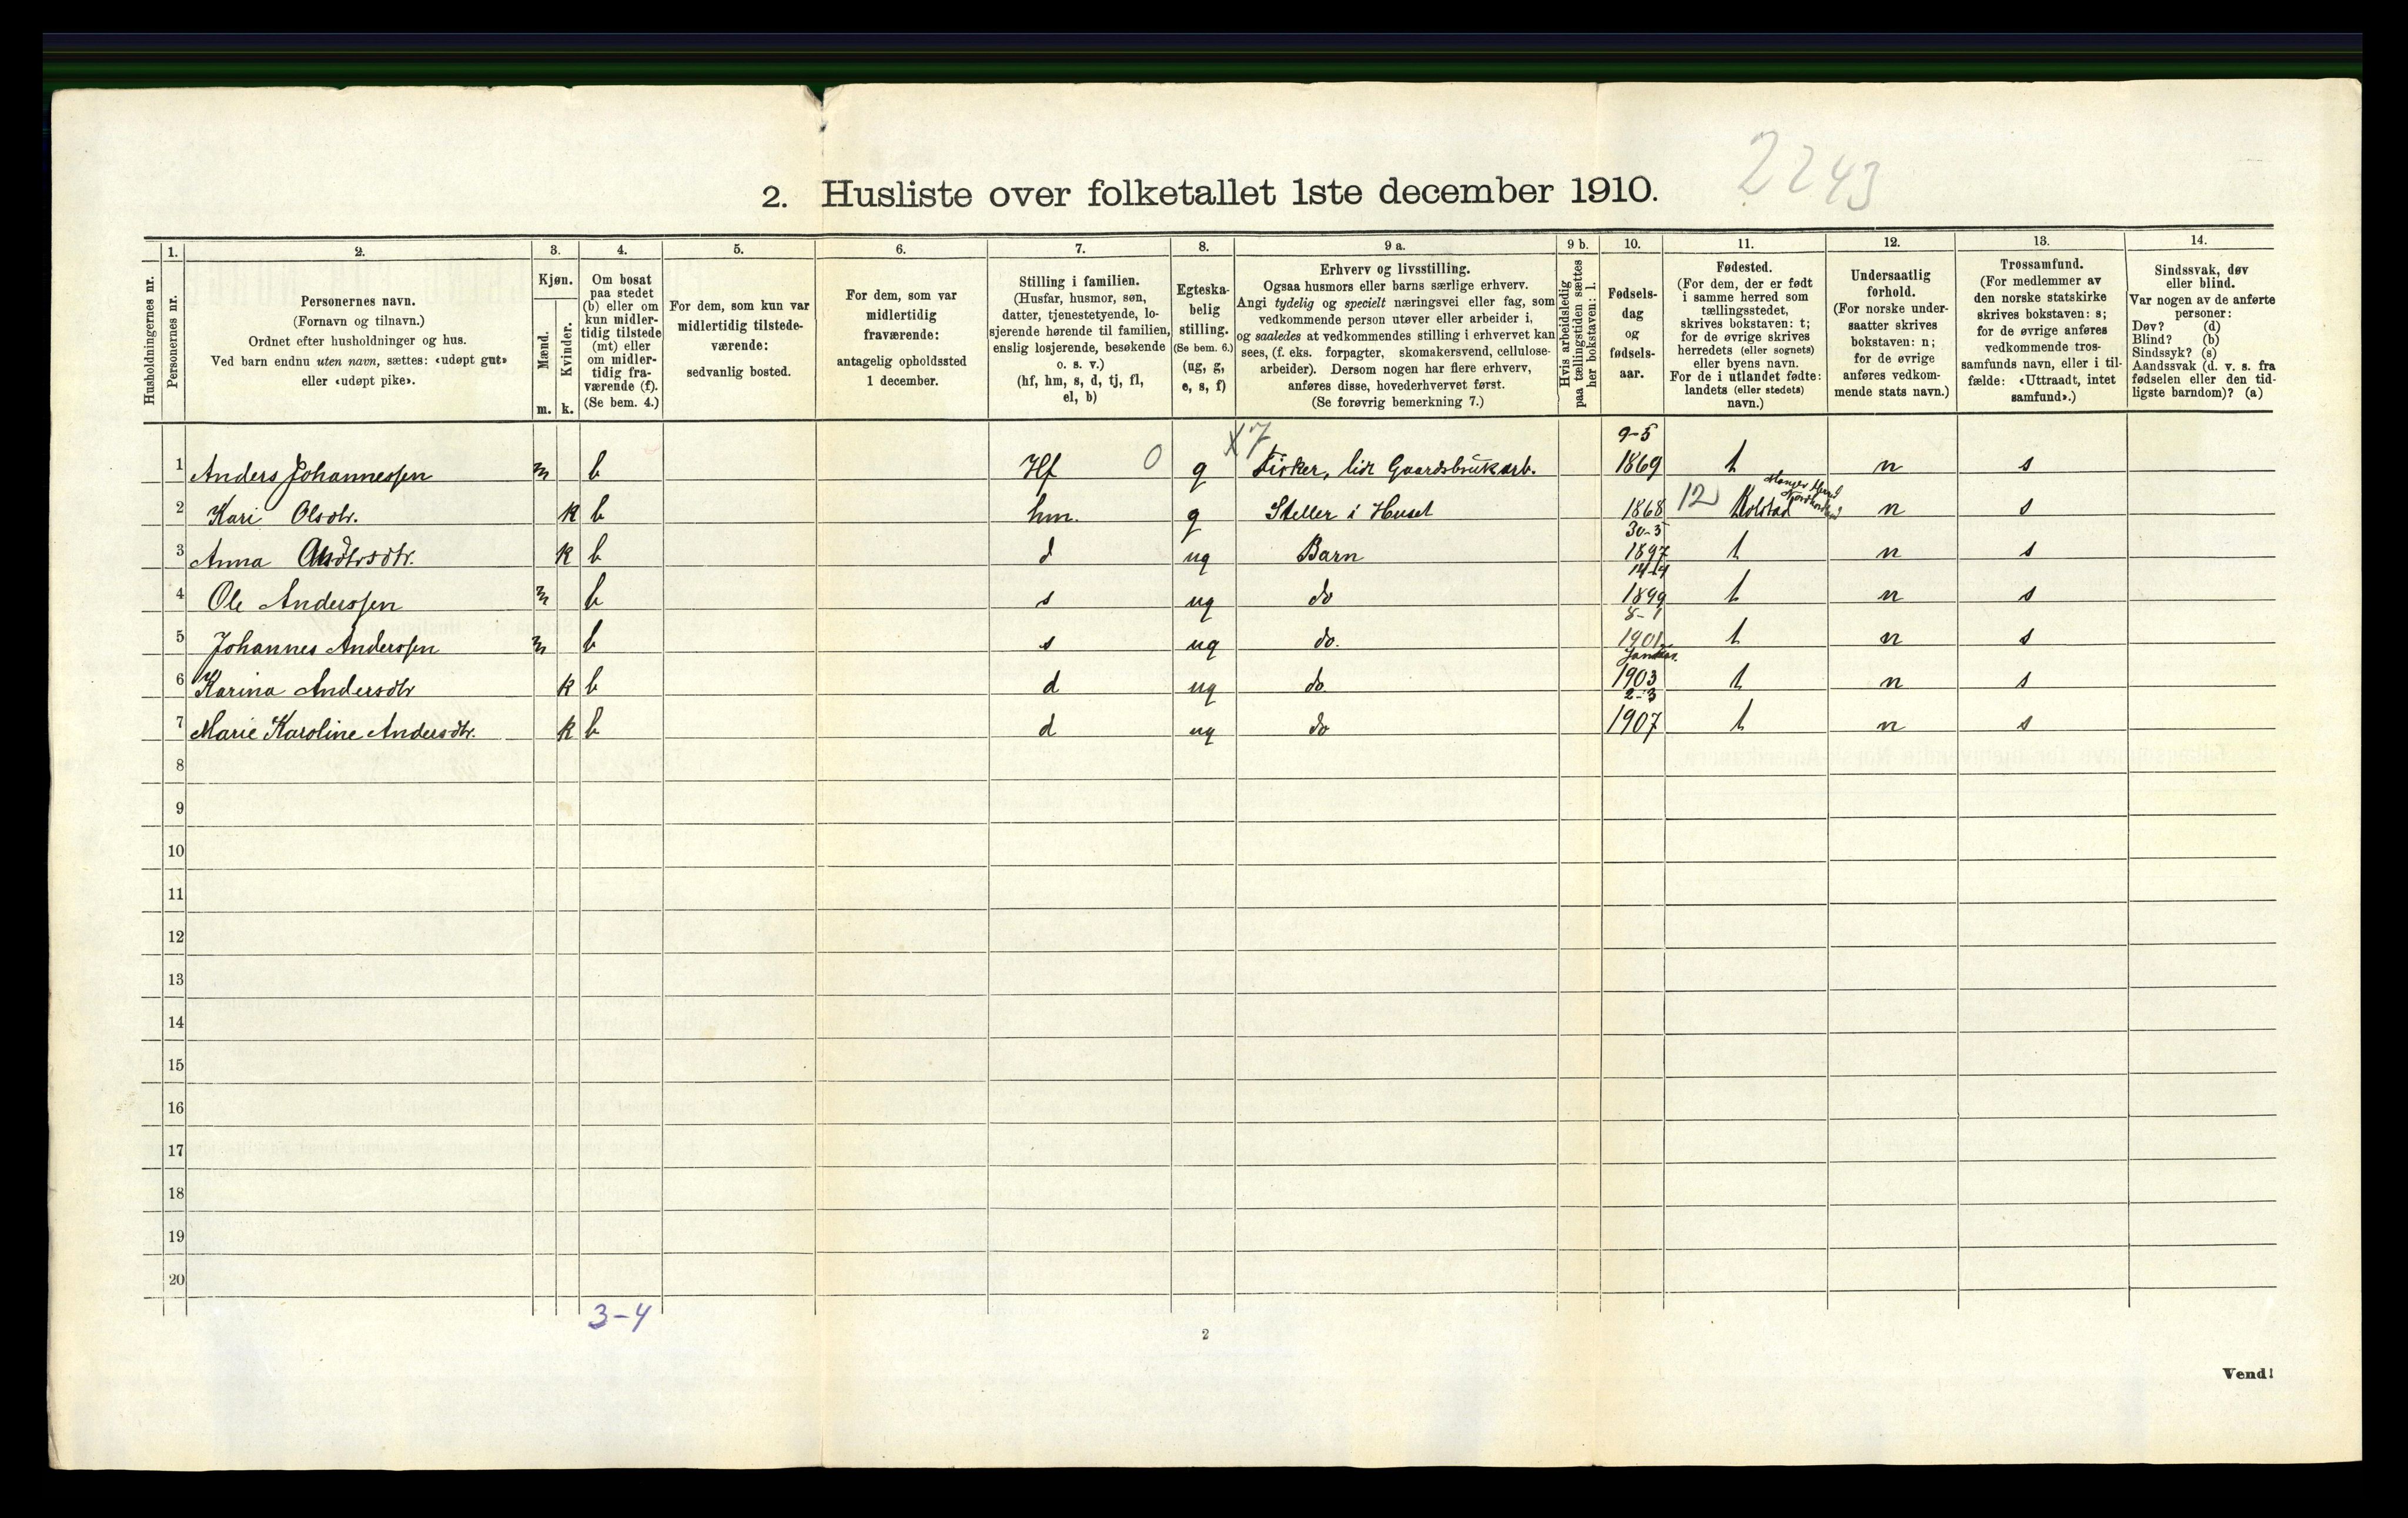 2243
2. Husliste over folketallet 1ste december 1910.
Husholdningernes nr.
1.
Personernes nr.
2.
Personernes navn.
(Fornavn og tilnavn.)
Ordnet efter husholdninger og hus.
Ved barn endnu uten navn, sættes: «udøpt gut»
eller «udøpt pike».
3.
Kjøn.
Mænd.
Kvinder.
m. k.
4.
Om bosat
paa stedet
(b) eller om
kun midler-
tidig tilstede
(mt) eller
om midler-
tidig fra-
værende (f).
(Se bem. 4.)
5.
For dem, som kun var
midlertidig tilstede-
værende:
sedvanlig bosted.
6.
For dem, som var
midlertidig
fraværende:
antagelig opholdssted
1 december.
7.
Stilling i familien.
(Husfar, husmor, søn,
datter, tjenestetyende, lo-
sjerende hørende til familien,
enslig losjerende, besøkende
o. s. v.)
(hf, hm, s, d, tj, fl,
el, b)
8.
Egteska-
belig
stilling.
(Se bem. 6.)
(ug, g,
e, s, f)
9 a.
Erhverv og livsstilling.
Ogsaa husmors eller barns særlige erhverv.
Angi tydelig og specielt næringsvei eller fag, som
vedkommende person utøver eller arbeider i,
og saaledes at vedkommendes stilling i erhvervet kan
sees, (f. eks. forpagter, skomakersvend, cellulose-
arbeider). Dersom nogen har flere erhverv,
anføres disse, hovederhvervet først.
(Se forøvrig bemerkning 7.)
9 b.
Hvis arbeidsledig
paa tællingstiden sættes
her bokstaven: l.
10.
Fødsels-
dag
og
fødsels-
aar.
11.
Fødested.
(For dem, der er født
i samme herred som
tællingsstedet,
skrives bokstaven: t;
for de øvrige skrives
herredets (eller sognets)
eller byens navn.
For de i utlandet fødte:
landets (eller stedets)
navn.)
12.
Undersaatlig
forhold.
(For norske under-
saatter skrives
bokstaven: n;
for de øvrige
anføres vedkom-
mende stats navn.)
13.
Trossamfund.
(For medlemmer av
den norske statskirke
skrives bokstaven: s;
for de øvrige anføres
vedkommende tros-
samfunds navn, eller i til-
fælde: «Uttraadt, intet
samfund».)
14.
Sindssvak, døv
eller blind.
Var nogen av de anførte
personer:
Døv? (d)
Blind? (b)
Sindssyk? (s)
Aandssvak (d. v. s. fra
fødselen eller den tid-
ligste barndom)? (a)
X7 9-5
1 Anders Johannessen m b Hf 0 g Fisker, lidt Gaardsbrukarb. 1869 t n s
2 Kari Olsdtr. k b hm. g Steller i Huset 1868 12 n s
30-5
3 Anna k b d ug Barn 1897 t n s
14-4
4 Ole Anderssen m b s ug do 1899 t n s
8-1
5 Johannes Anderssen m b s ug do. 1901 t n s
6 Karina Andersdtr k b d ug do 1903 t n s
2-3
7 Marie Karoline Andersdtr. k b d ug do 1907 t n s
8
9
10
11
12
13
14
15
16
17
18
19
20
3-4
2
Vend!